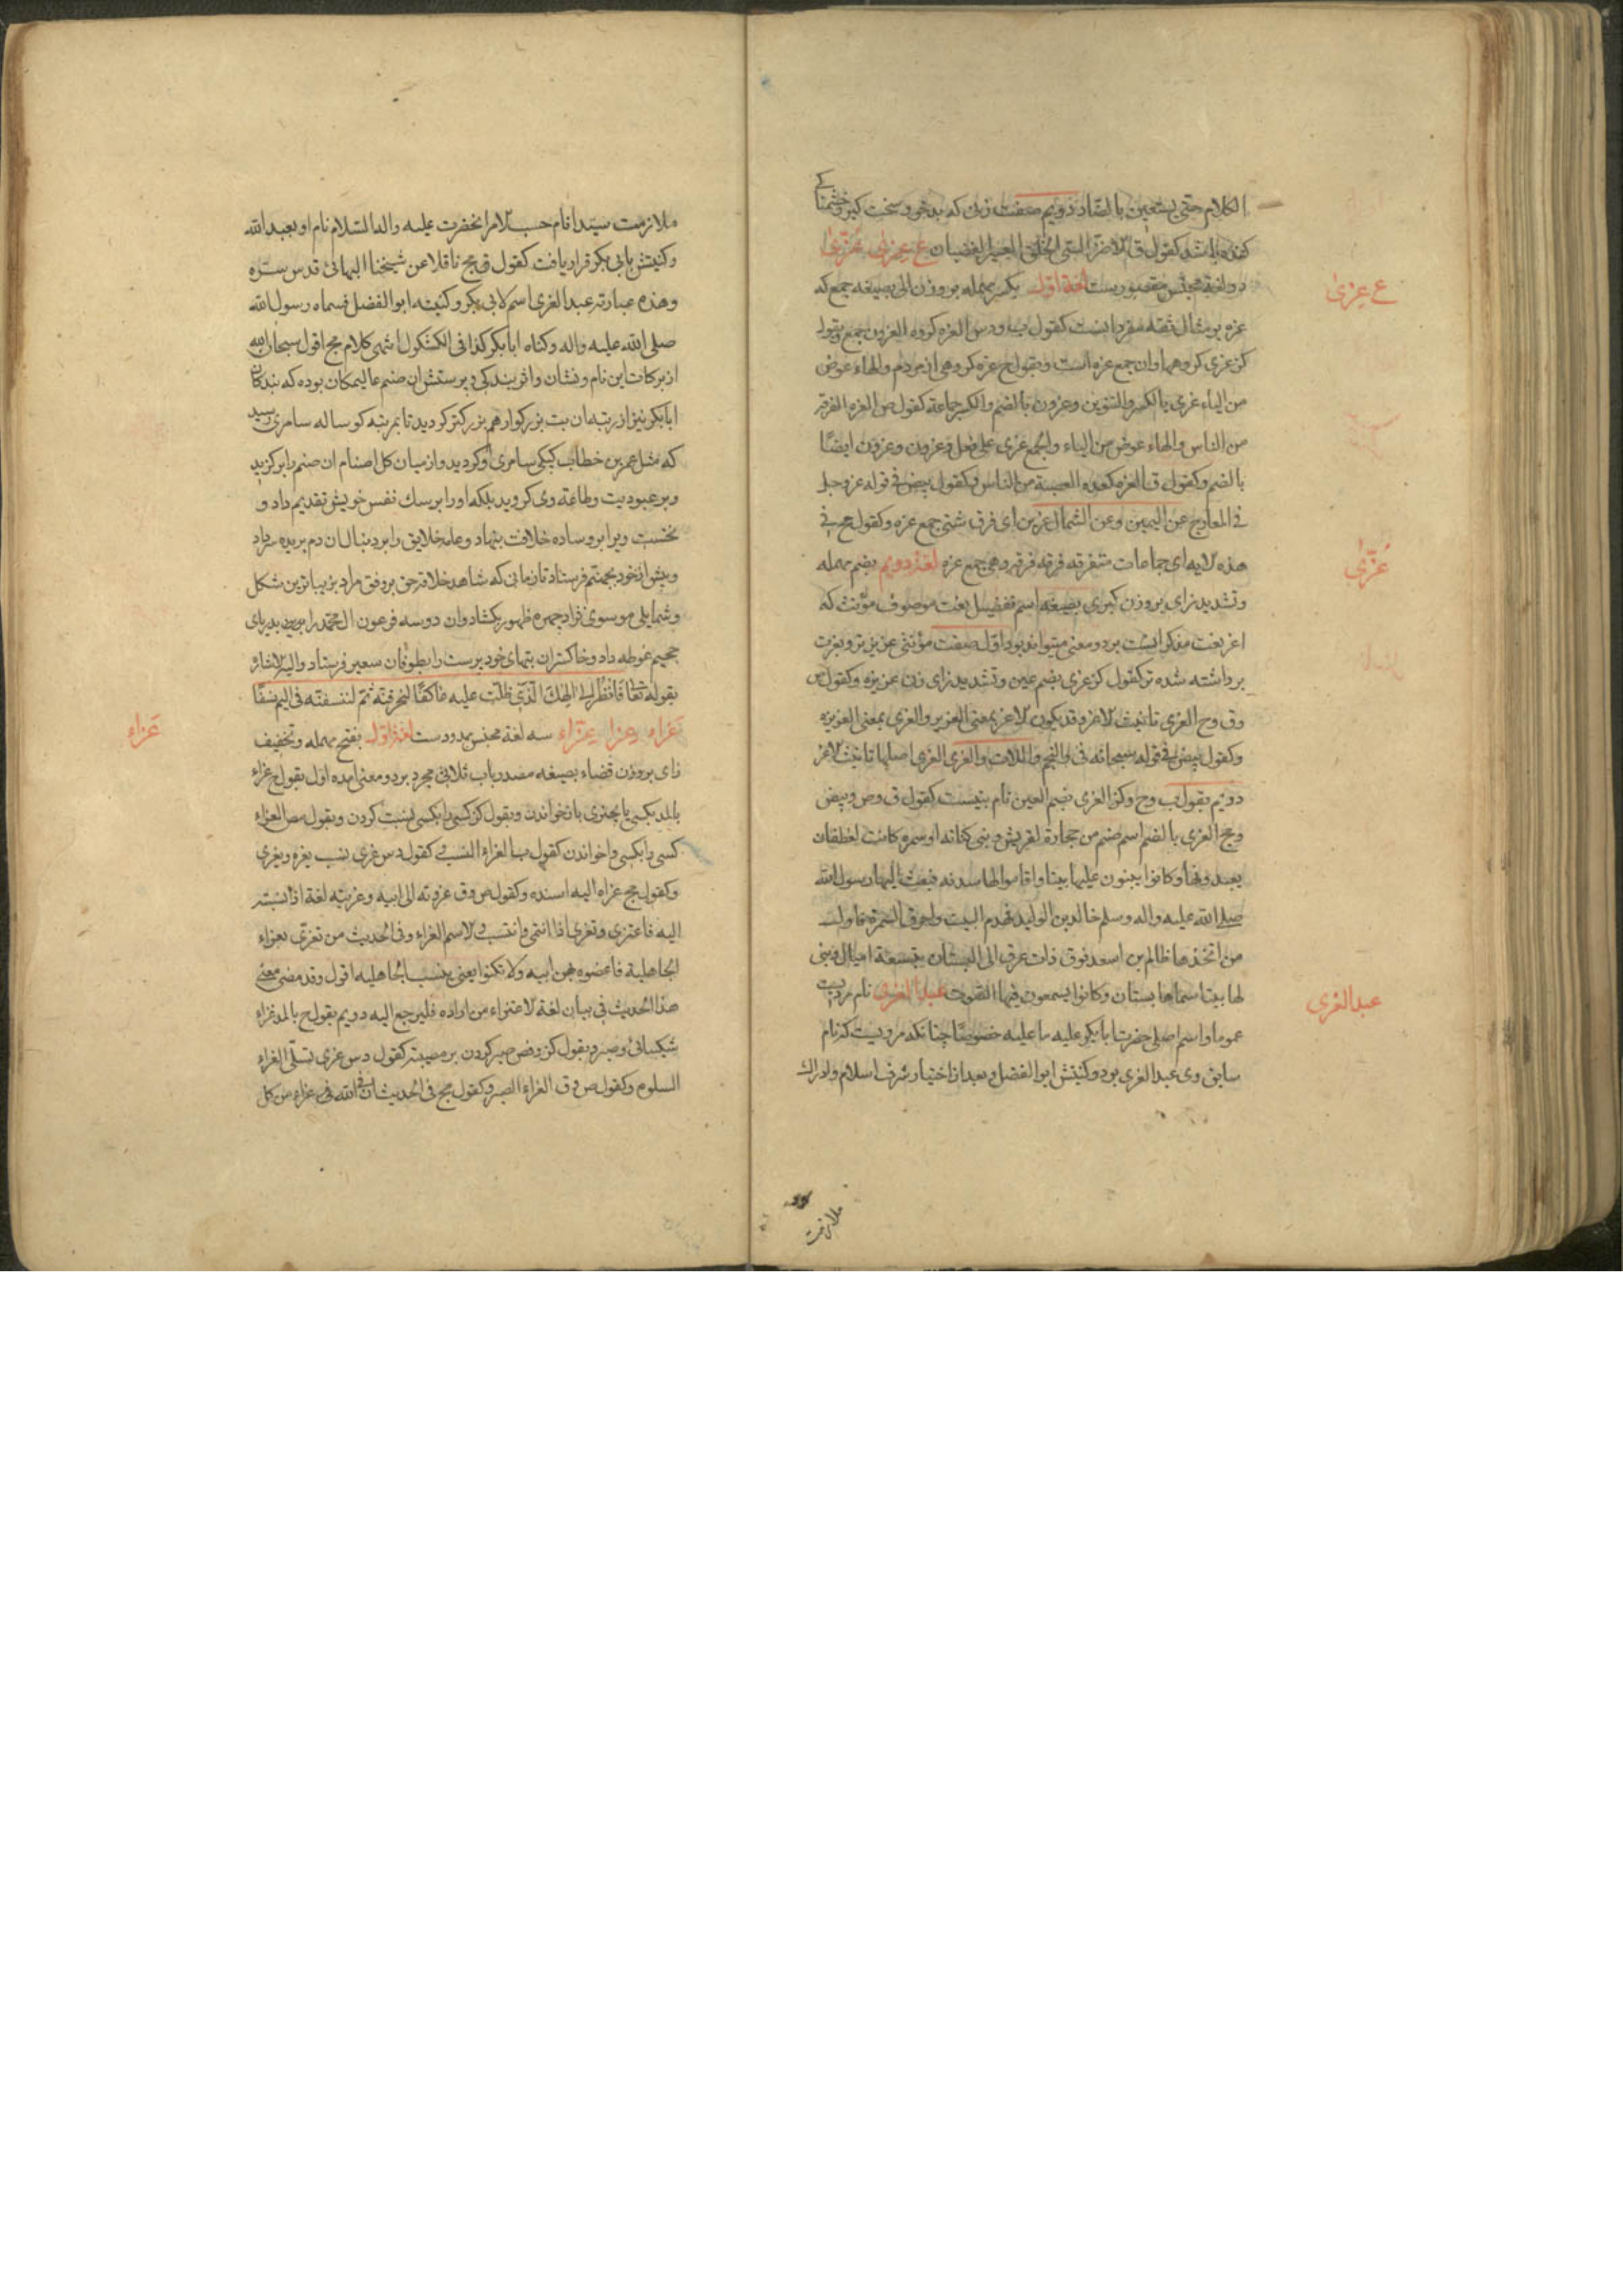 الکلام حتی یستعین بالضاد دویم صفت زنی که بدخو و سخت کیر و خشمناکے
کفته باشد کقول ق الاضز السئ الخلق العسر الغضبان ع عِزیٰ عُزّیٰ
دو لغة مجنس مقصورست لغة اول بکسر مهمله بر وزن الی بصیغه جمع که
عزه بر مثال ثقه مفرد انست کقول ب و دس العزه کروه العزون جمع و بقول
کز عزی کروهها و ان جمع عزه است و بقول ح عزه کروهی از مردم والهاء عوض
من الیاء عزی بالکسر والتنوین وعزون بالضم والکسر جماعة کقول ص العزه الفرقة
من الناس والهاء عوض من الیاء والجمع عزی علی فعل وعزون وعزون ایضًا
بالضم وکقول ق العزه کعده العصبة من الناس وکقول بیض فی قوله عز وجل
فی المعارج عن الیمین وعن الشمال عزین ای فرق شتی جمع عزه وکقول مج فی
هذه الایه ای جماعات متفرقه فرقه فرقه وهی جمع عزه لغة دویم بضم مهمله
وتشدید زای بر وزن کبری بصیغه اسم تفضیل نعت موصوف مؤنث که
اعز نعت مذکر انست بر دو معنی میتواند بود اول صفت مؤنثی عزیز تر و بعزت
برداشته شده تر کقول کز عزی بضم عین وتشدید زای زن عزیزه وکقول ص
وق وح العزی تانیث الاعز وقد یکون الاعز بمعنی العزیز والعزی بمعنی العزیزه
وکقول بیض فی قوله سبحانه فی والنجم واللات والعزی العزی اصلها تانیث الاعز
دویم بقول ب وح وکز العزی بضم العین نام بتیست کقول ق وص وبیض
ومج العزی بالضم اسم صنم من حجارة لقریش وبنی کنانه او سمره کانت لغطفان
یعبدونها وکانوا یبنون علیها بیتا واقاموا لها سدنه فبعث الیها رسول الله
صلی الله علیه واله وسلم خالد بن الولید فهدم البیت واحرق السمرة واول
من اتخذها ظالم بن اسعد فوق ذات عرق الی البستان بتسعة امیال وبنی
لها بیتا سماها بستان وکانوا یسمعون فیها الصوت عبد العزی نام مردیست
عموما واسم اصلی حضرت ابابکر علیه ما علیه خصوصًا چنانکه مرویست که نام
سابق وی عبد العزی بود وکنیتش ابو الفضل وبعد از اختیار شرف اسلام وادراک
ع عِزیٰ
عُزّیٰ
عبد العزی
ملازمت
ملازمت سیّد انام حسب الامر انحضرت علیه واله السّلام نام او بعبد الله
وکنیتش بابی بکر قرار یافت کقول فی مج ناقلا عن شیخنا البهائی قدس سرّه
وهذه عبارته عبد العزی اسم لابی بکر وکنیته ابو الفضل فسماه رسول الله
صلی الله علیه واله وکناه ابابکر کذا فی الکشکول انتهی کلام مج اقول سبحان الله
از برکات این نام ونشان واثر بندکی وپرستش ان صنم عالیمکان بوده که بندکان
ابابکر نیز از رتبه ان بت بزرکوار هم بزرکتر کردید تا بمرتبه کوساله سامری رسید
که مثل عمر بن خطاب کیکی سامری او کردید واز میان کل اصنام ان صنم را برکزید
وبر عبودیت وطاعة وی کروید بلکه او را بر سک نفس خویش تقدیم داد و
نخست ویرا بر وساده خلافت بنهاد وعامه خلایق را بر دنبال ان دم بریده سر داد
وپیش از خود بجهنم فرستاد تا زمانی که شاهد خلافة حق بر وفق مراد بزیباترین شکل
وشمایلی موسوی نژاد چهره ظهور بکشاد وان دو سه فرعون ال محمد را بدریای
جحیم غوطه داد وخاکستر ان بتهای خود پرست را بطوفان سعیر فرستاد والیه الاشارة
بقوله تعا فانظُر الی الهِک الّذی ظلت علیه عاکفًا لنحرقنّه ثمّ لننسفنّه فی الیم نسفًا
عَزاء وعزا عِزّاء سه لغة مجنس ممدودست لغة اول بفتح مهمله وتخفیف
زای بر وزن قضاء بصیغه مصدر باب ثلاثی مجرد بر دو معنی امده اول بقول ح عزاء
بالمد بکسی یا بچیزی باز خواندن وبقول کز کسی را بکسی نسبت کردن وبقول مص العزاء
کسی را بکسی واخواندن کقول ب العزاء النسب کقول دس عزی نسب یعزو ویعزی
وکقول مج عزاه الیه اسنده وکقول ص وق عزوته الی ابیه وعزیته لغة اذا نسبته
الیه فاعتزی وتعزی اذا انتمی وانتسب والاسم العزاء وفی الحدیث من تعزّی بعزاء
الجاهلیة فاعضوه بهن ابیه ولا تکنوا یعنی بنسب الجاهلیه اقول وقد مضی معنی
هذا الحدیث فی بیان لغة الاعتزاء من اراده فلیرجع الیه دویم بقول ح بالمد عزاء
شکیبائی وصبر وبقول کز ومص صبر کردن بر مصیبت کقول دس عزی تسلّی العزاء
السلوه وکقول ص وق العزاء الصبر وکقول مج فی الحدیث ان فی الله عزاء من کل
عَزاء